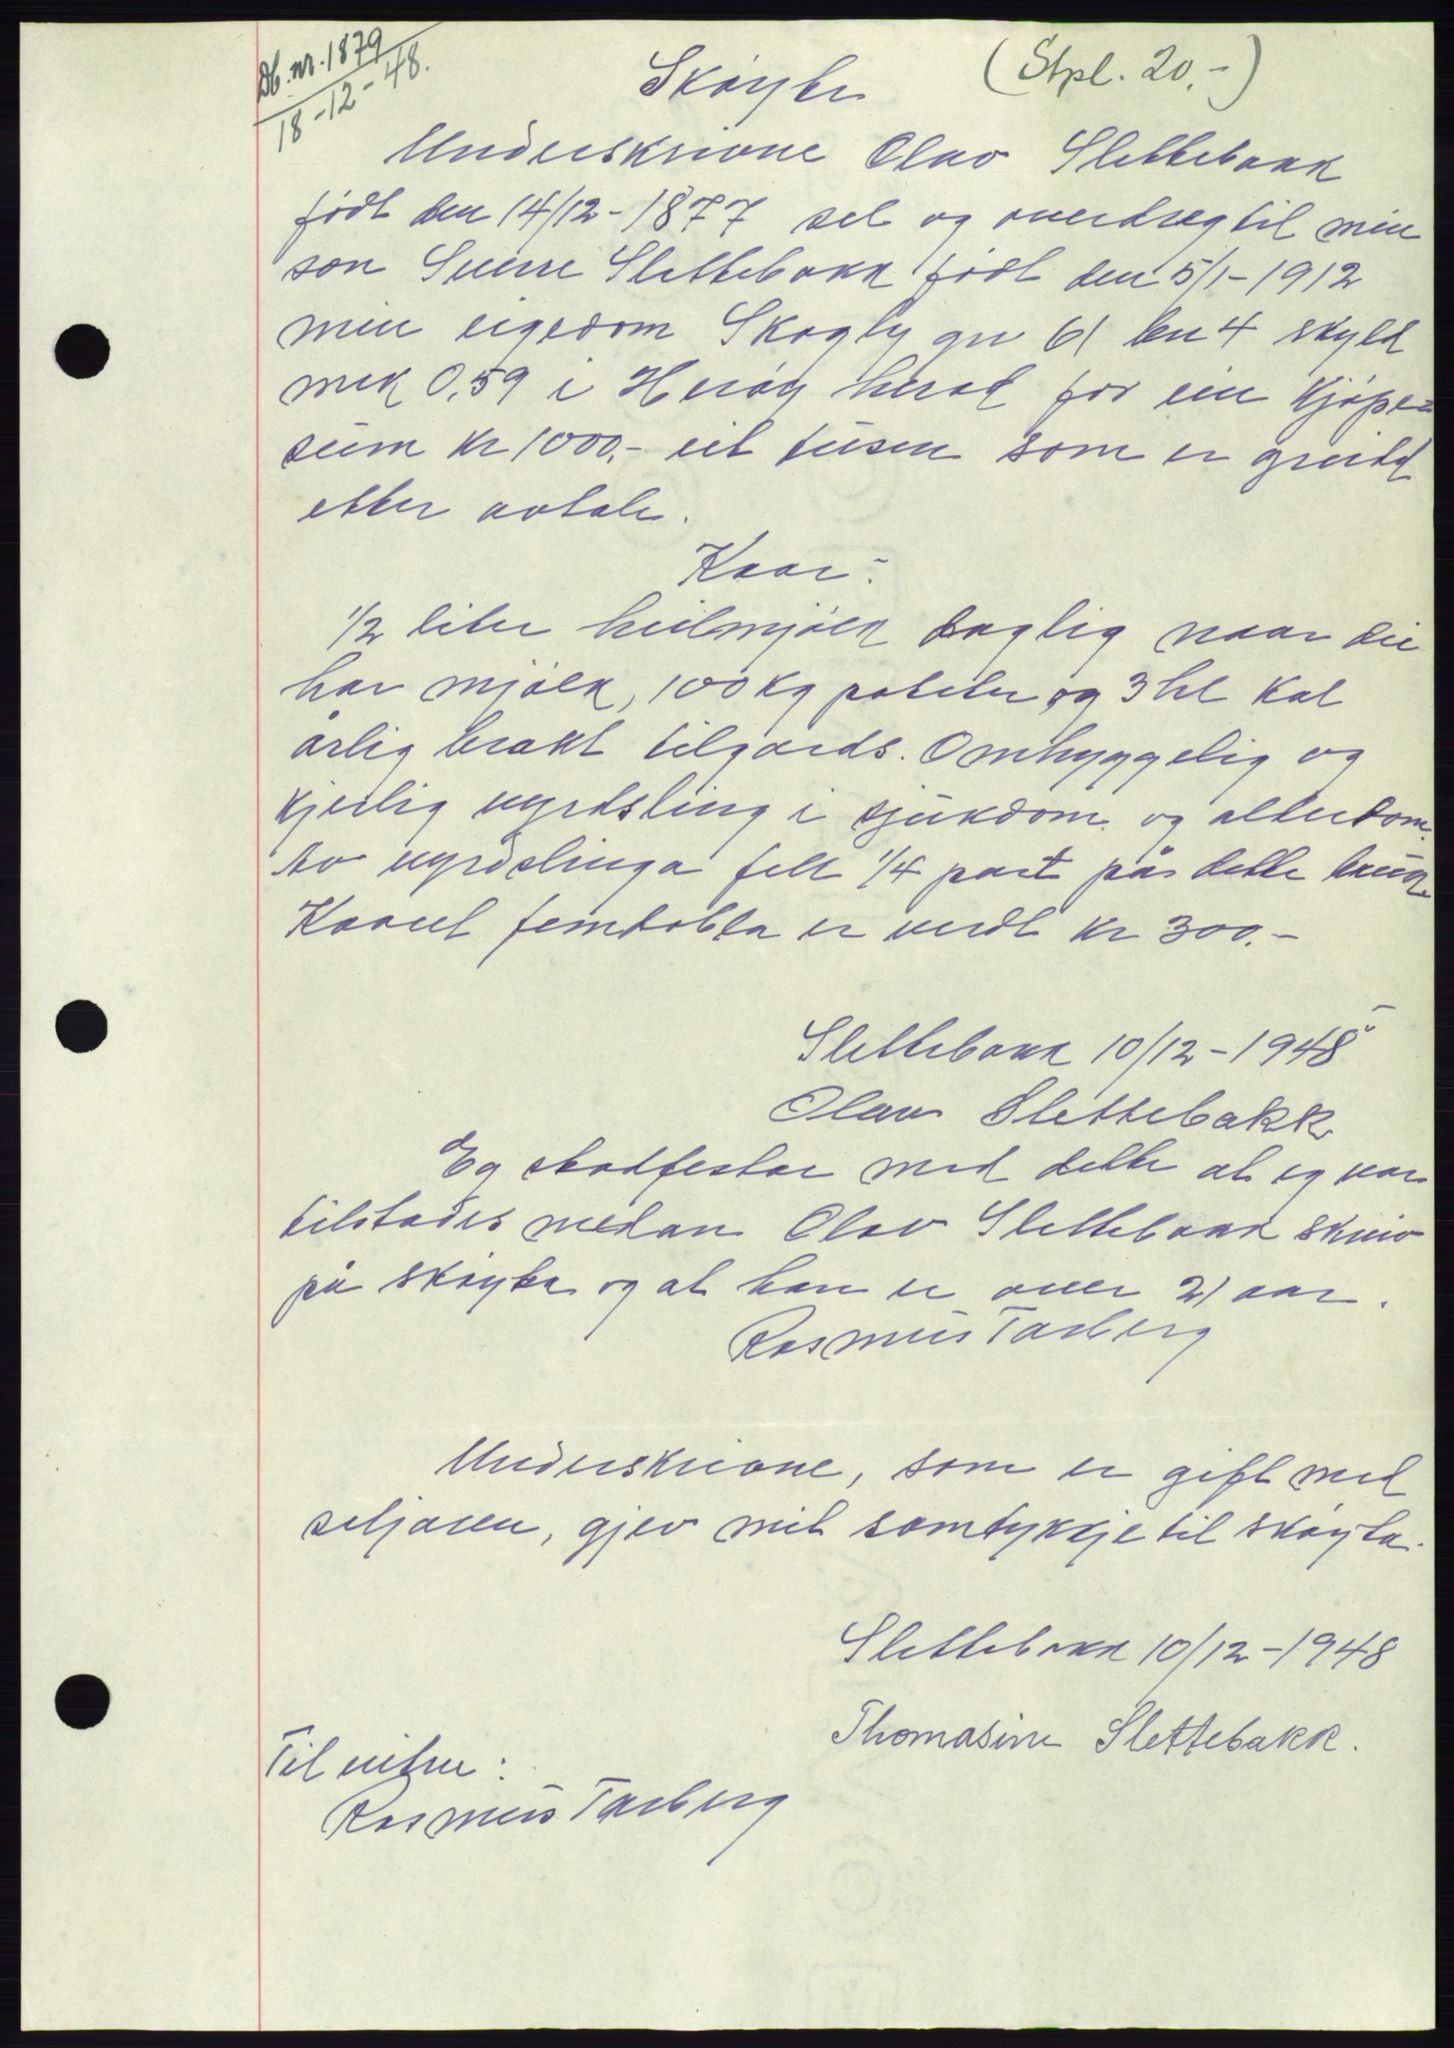 Db. nr. 1879
18-12-48.
(Stpl. 20.-)
Skøyte
Underskrivne Olav Slettebakk
født den 14/12-1877 sel og overdreg til min
son Sverre Slettebakk født den 5/1-1912
min eigedom Skogly gn 61 bn 4 skyld
mrk 0,59 i Herøy herad for ein kjøpe=
sum kr 1000.- eit tusen som er greidd
etter avtale.
Kaar:
1/2 liter heilmjølk daglig naar dei
har mjølk, 100 kg poteter og 3 hl kol
årlig brakt tilgards. Omhyggelig og
kjerlig vyrdsling i sjukdom og alterdom.
Av vyrdslinga fell 1/4 part på dette bruk.
Kaaret femdobla er verdt kr 300.-
Slettebakk 10/12-1948
Olav Slettebakk
Eg stadfestar med dette at eg var
tilstades medan Olav Slettebakk skreiv
på skøyta og at han er over 21 aar.
Rasmus Tarberg
Underskrivne, som er gift med
seljaren, gjev mit samtykkje til skøyta.
Slettebakk 10/12-1948
Thomasine Slettebakk.
Til vitne:
Rasmus Tarberg